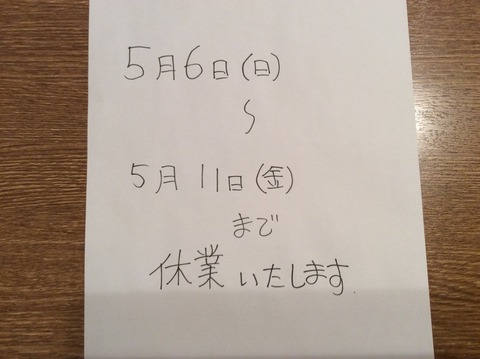 5月6日(日)
〜
5月11日(金)
まで
休業いたします